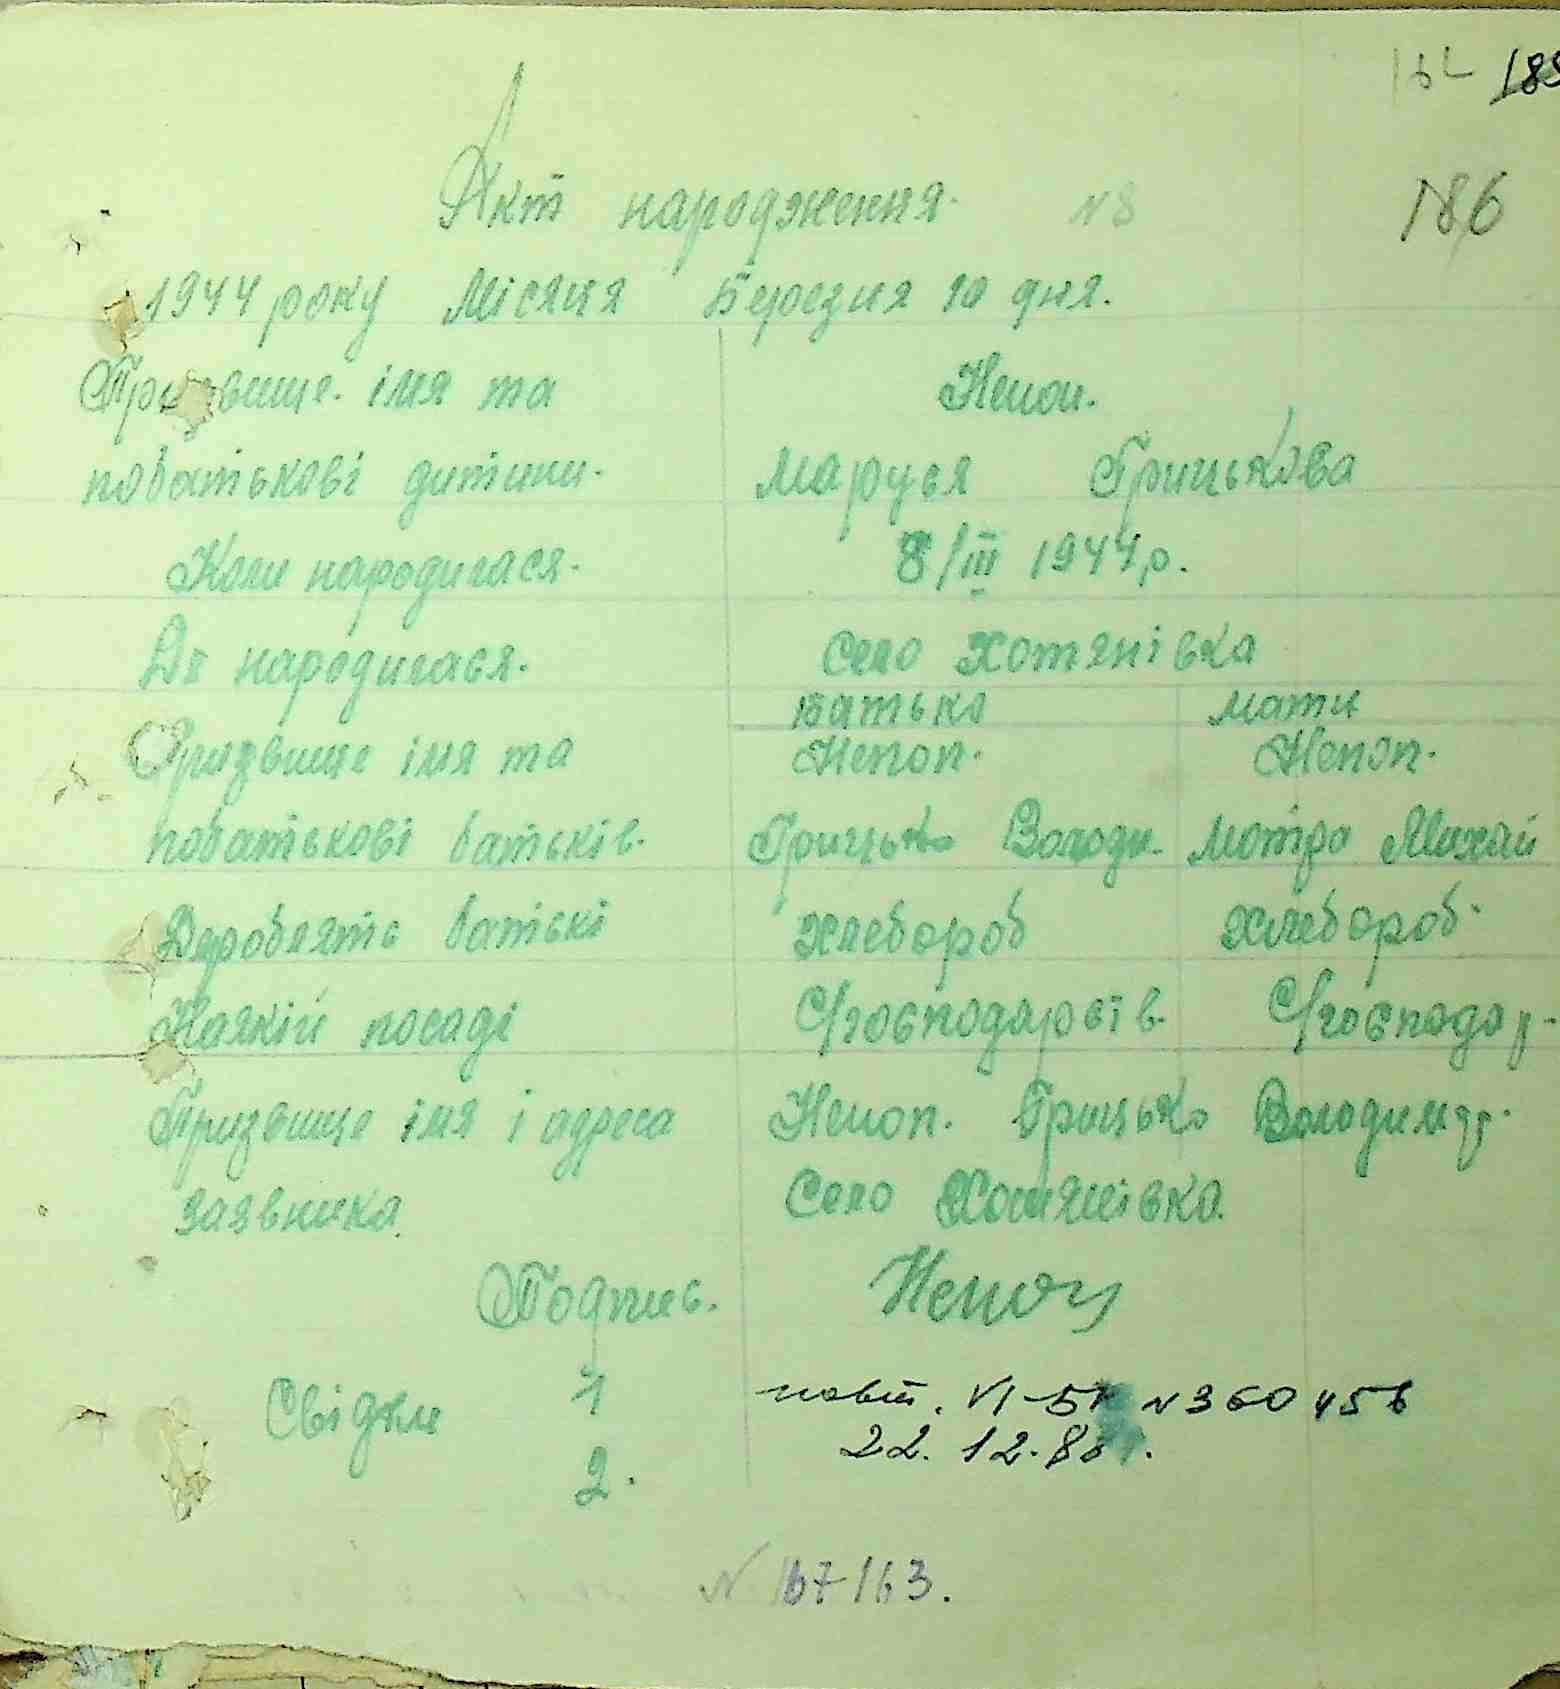 Акт народження. №8
186
1944 року Місяця Березня 10 дня.
Призвище. імя та Непоп.
побатькові дитини. Маруся Грицькова
Коли народилася. 8/III 1944 р.
Де народилася. Село Хотянівка
Батько Мати
Призвище імя та Непоп. Непоп.
побатькові батьків. Грицько Володи. Мотря Михай
Дероблять батькі Хлебороб Хлебороб.
Наякій посаді С/господарств. С/господар.
Призвище імя і адреса Непоп. Грицько Володимир.
заявника. Село Хотянівка.
Подпис. Непоп
Свідки 1 повт. VI-БК №360456
2. 22.12.80 г.
N 167163.